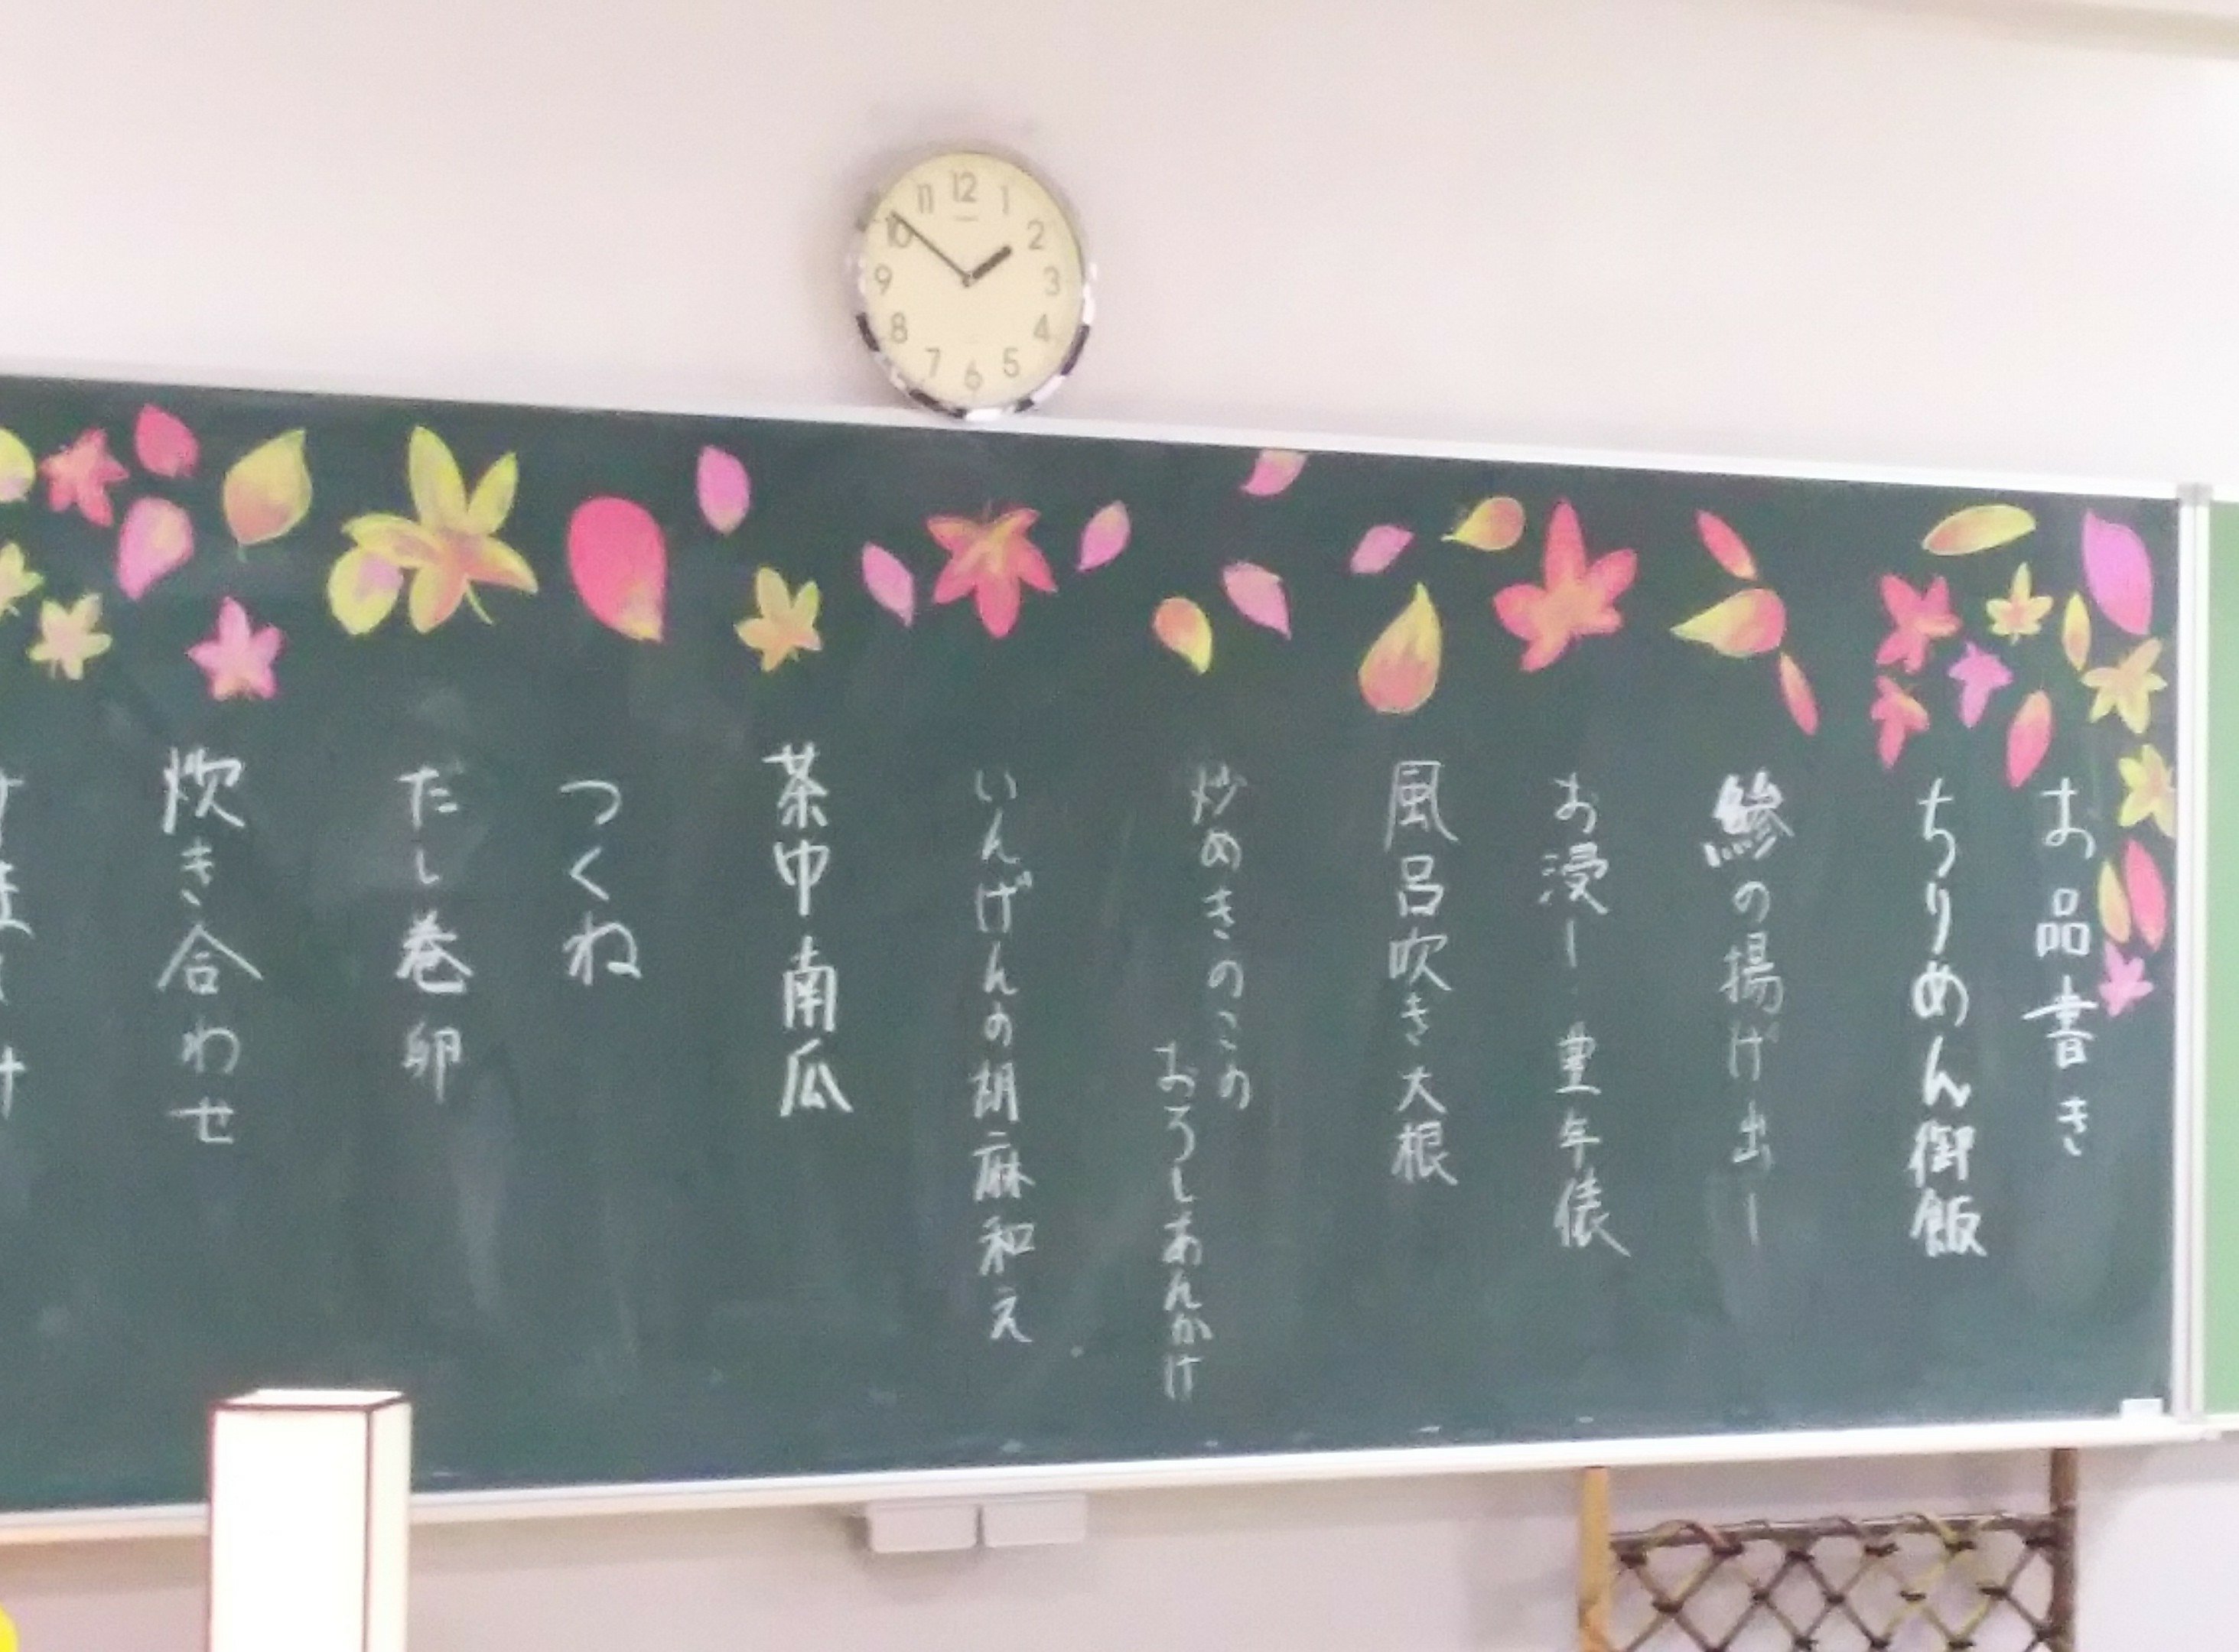 12
1
2
3
4
5
6
7
8
9
10
11
お品書き
ちりめん御飯
鯵の揚げ出し
お浸し・豊年俵
風呂吹き大根
炒めきのこの
おろしあんかけ
いんげんの胡麻和え
茶巾南瓜
つくね
だし巻卵
炊き合わせ